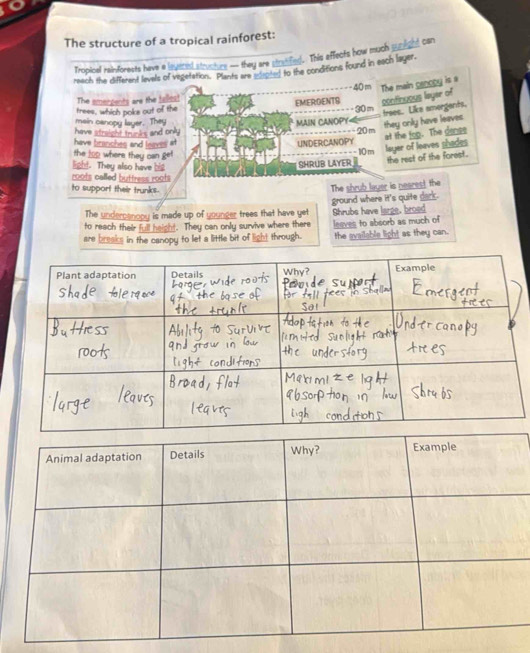 The structure of a tropical rainforest:
Tropical rainforests have a layered structure — they are stratified. This affects how much sunlight can
reach the different levels of vegetation. Plants are adapted to the conditions found in each layer.
The emergents are the tallest
trees, which poke out of the
main canopy layer. They
have straight trunks and only
have branches and leaves at
the top where they can get
light. They also have big
roots called buttress roots
to support their trunks.
40m
EMERGENTS
30m
MAIN CANOPY
20m
UNDERCANOPY
10m
SHRUB LAYER
The main canopy is a
continuous layer of
trees. Like emergents,
they only have leaves
at the top. The dense
layer of leaves shades
the rest of the forest.
The undercanopy is made up of younger trees that have yet
to reach their full height. They can only survive where there
are breaks in the canopy to let a little bit of light through.
The shrub layer is nearest the
ground where it's quite dark.
Shrubs have large, broad
leaves to absorb as much of
the available light as they can.
Plant adaptation Details Why? Example
Shade
Larger wide roots
at the base of
the
Provide support
for tall in shallow
Emergent
trees
Buttress
roots
Ability to survive
and grow in low
light conditions
to the
limited sunlight
the understory
Undercanopy
trees
large leaves
Broad, flat
leaves
light
absorption in low
conditions
Shrubs
Animal adaptation Details Why? Example